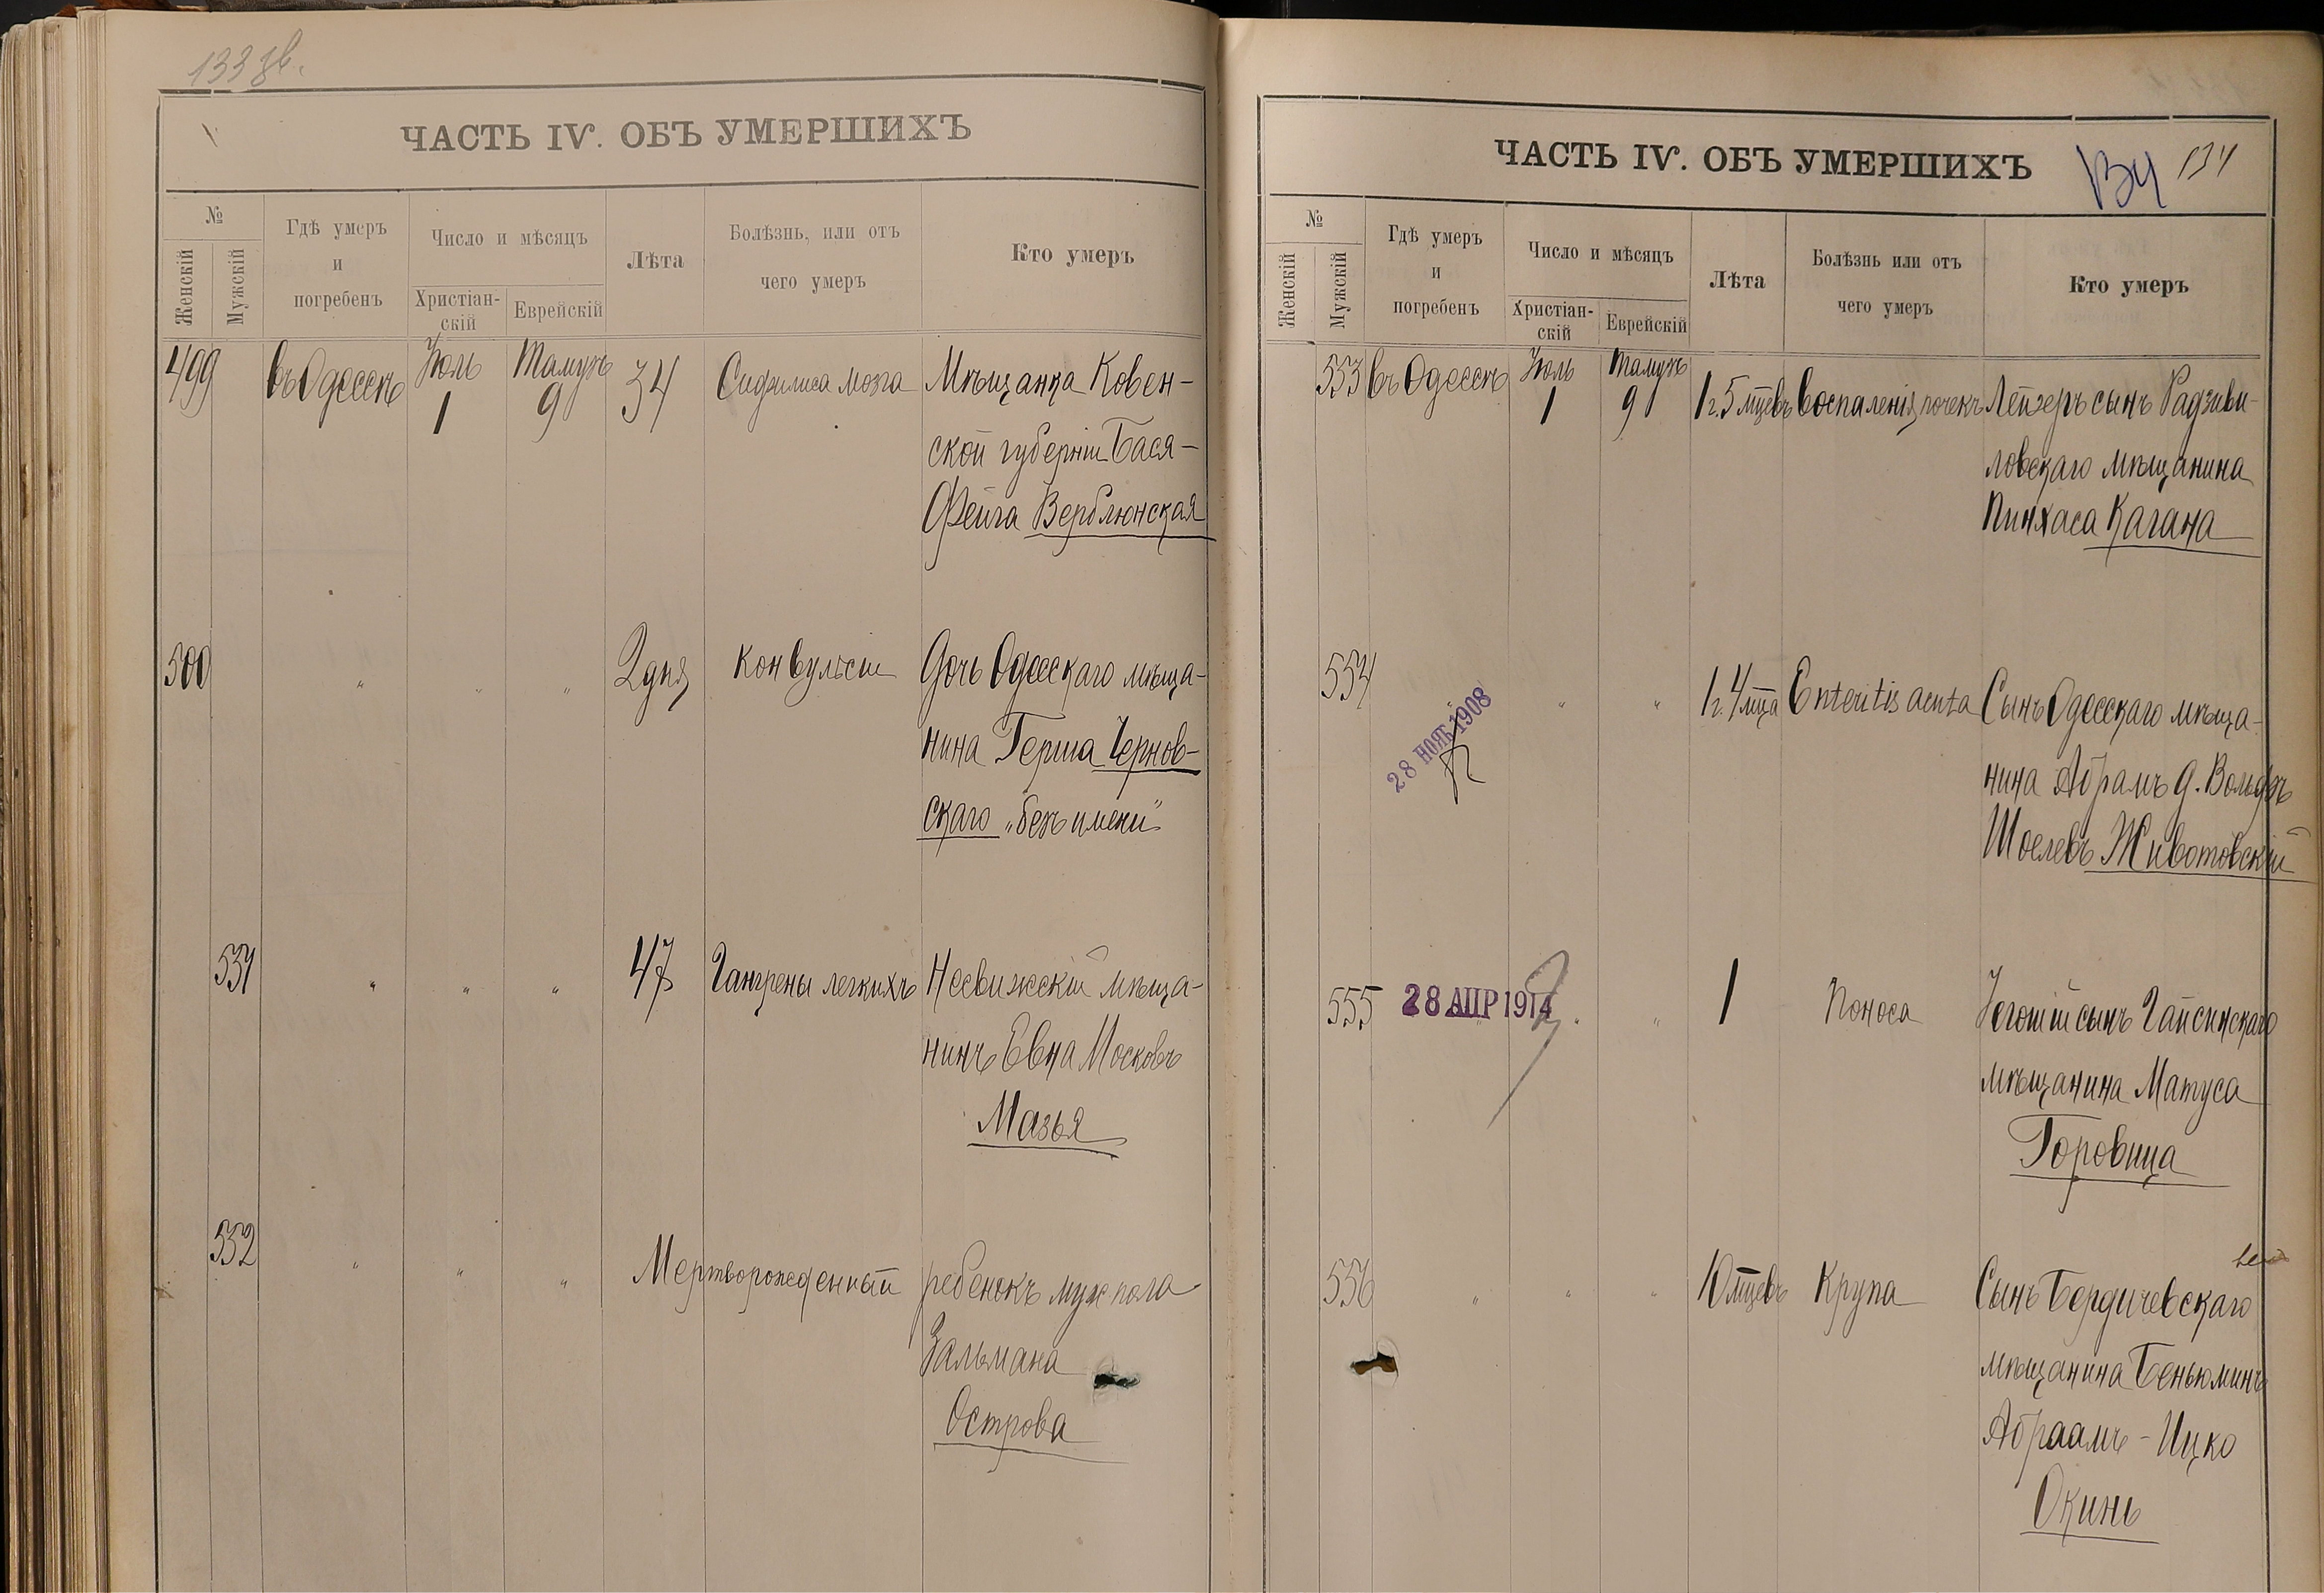 133 зв.
ЧАСТЬ IV. ОБЪ УМЕРШИХЪ
№
Женскій
Мужскій
Гдѣ умеръ
и
погребенъ
Число и мѣсяцъ
Христіан-
скій
Еврейскій
Лѣта
Болѣзнь, или отъ
чего умеръ
Кто умеръ
499 въ Одессѣ Іюль 1 Тамузъ 9 34 Сифилиса мозга Мѣщанка Ковен-
ской губерніи Бася-
Фейга Верблюнская
500 " " " 2 дня Конвульсіи Дочь Одесскаго мѣща-
нина Герша Чернов-
скаго „безъ имени"
531 " " " 47 Гангрены легкихъ Несвижскій мѣща-
нинъ Евна Московъ
Мазья
532 " " " Мертворожденный ребенокъ муж пола
Зальмана
Острова
ЧАСТЬ IV. ОБЪ УМЕРШИХЪ
134
134
№
Женскій
Мужскій
Гдѣ умеръ
и
погребенъ
Число и мѣсяцъ
Христіан-
скій
Еврейскій
Лѣта
Болѣзнь или отъ
чего умеръ
Кто умеръ
553 въ Одессѣ Іюль 1 Тамузъ 9 1 г. 5 мцевъ Воспаленія почекъ Лейзеръ сынъ Радзиви-
ловскаго мѣщанина
Пинхаса Кагана
554 " " " 1 г. 4 мца Enteritis acuta Сынъ Одесскаго мѣща-
28 НОЯБ 1908
нина Абрамъ д. Вольфъ
Шоелевъ Животовскій
555 28 АПР 1914 " " 1 Поноса Іегошіи сынъ Гайсинскаго
мѣщанина Матуса
Горовица
556 " " " 10 мцевъ Крупа Сынъ Бердичевскаго
мѣщанина Беньюминъ
Абраамъ-Ицко
Окинь